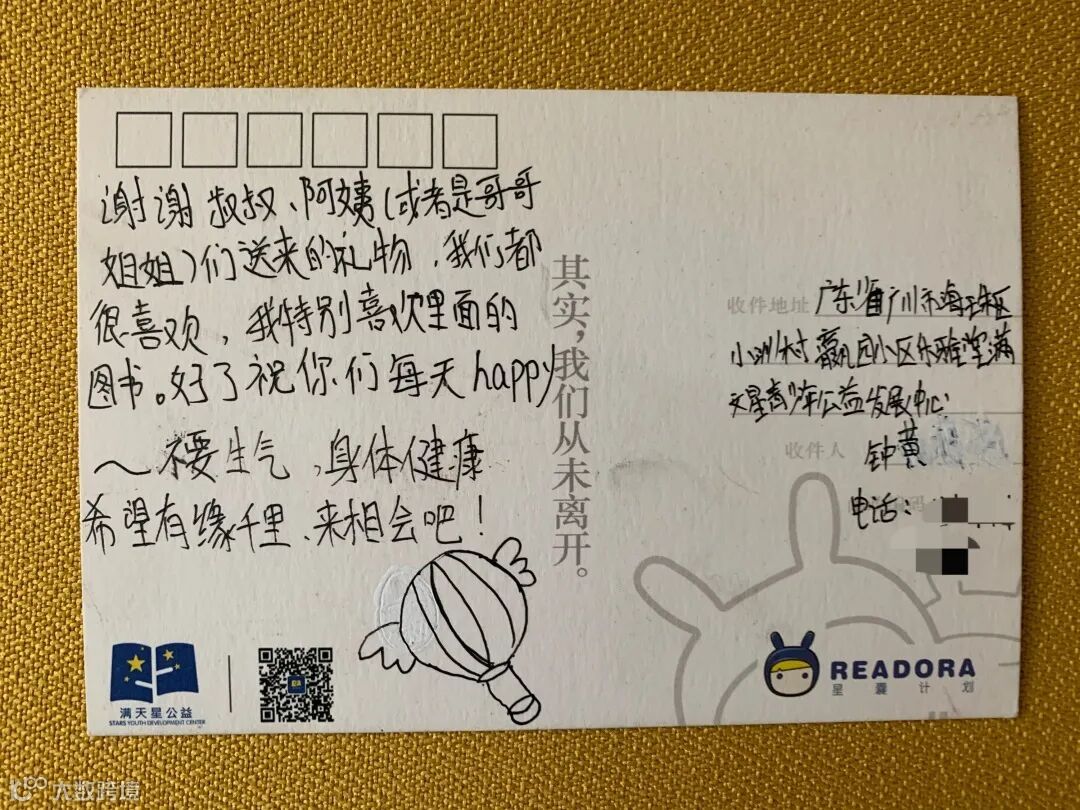 谢谢叔叔、阿姨(或者是哥哥
姐姐)们送来的礼物，我们都
很喜欢，我特别喜欢里面的
图书。好了祝你们每天happy
～不要生气，身体健康
希望有缘千里、来相会吧！
其实，我们从未离开。
收件地址 广东省广州市海珠区
小洲村瀛园小区乐雅堂满
天星青少年公益发展中心
收件人 钟黄
电话：
满天星公益
STARS YOUTH DEVELOPMENT CENTER
READORA
星囊计划
大数跨境